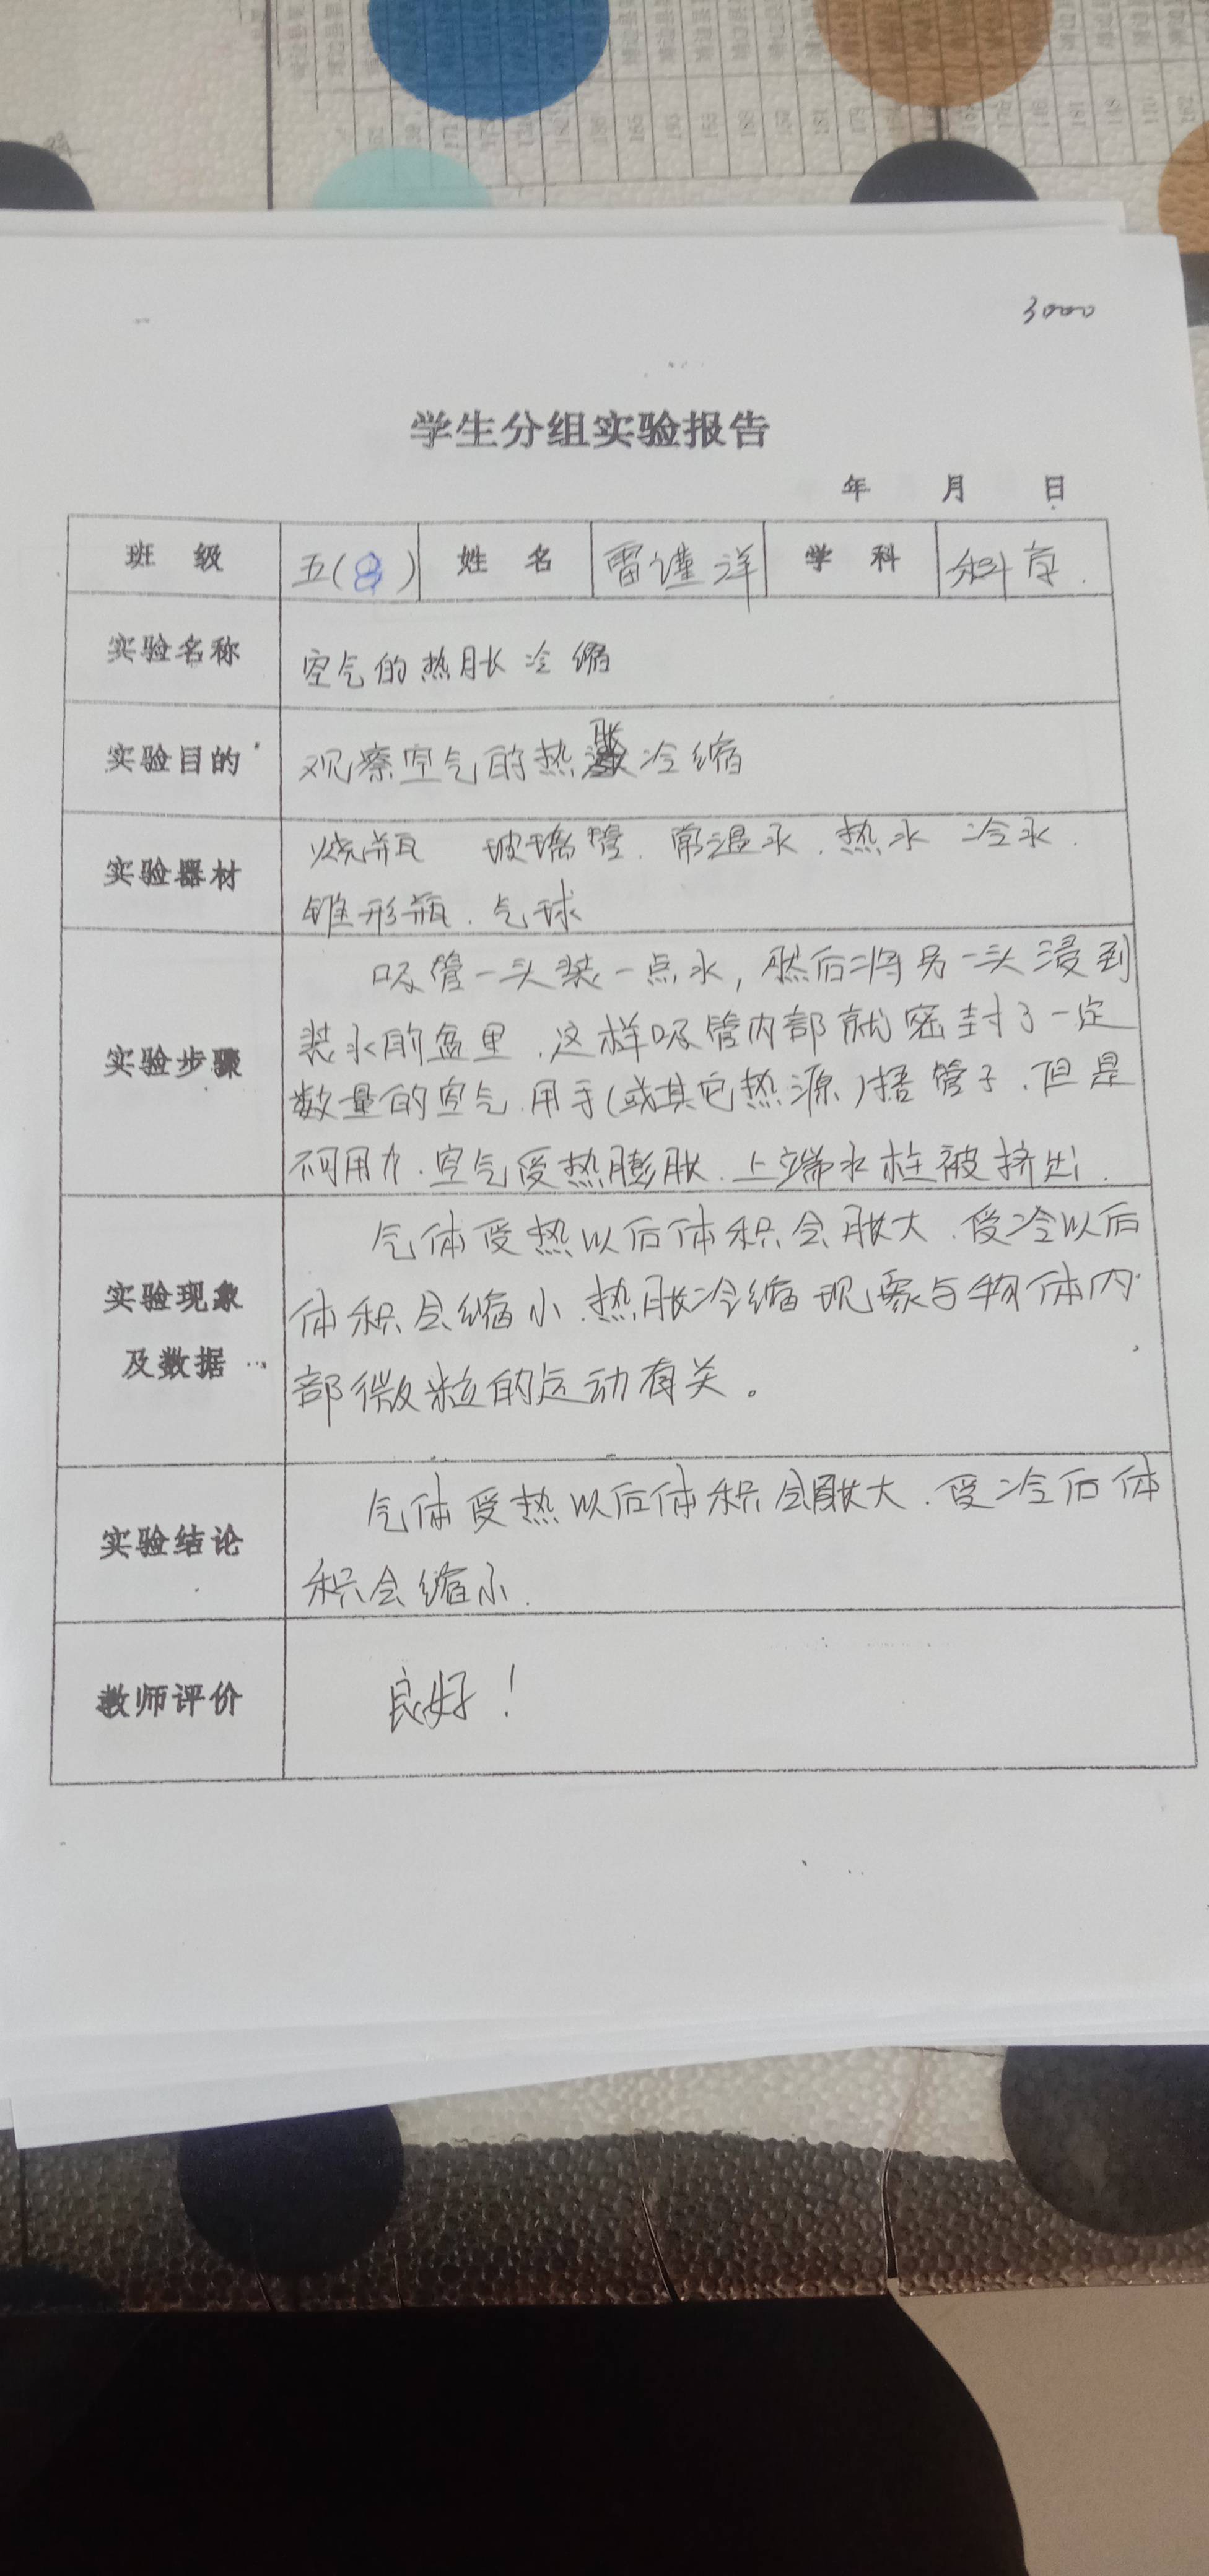 3000
学生分组实验报告
年 月 日
班 级 五(8) 姓 名 雷谨洋 学 科 科学.
实验名称 空气的热胀冷缩
实验目的 观察空气的热胀冷缩
实验器材 烧瓶 玻璃管. 常温水. 热水 冷水.
锥形瓶. 气球
实验步骤 吸管一头装一点水,然后将另一头浸到
装水的盆里.这样吸管内部就密封了一定
数量的空气.用手(或其它热源)捂管子.但是
不可用力.空气受热膨胀.上端水柱被挤出.
实验现象及数据 气体受热以后体积会胀大.受冷以后
体积会缩小.热胀冷缩现象与物体内
部微粒的运动有关。
实验结论 气体受热以后体积会胀大.受冷后体
积会缩小.
教师评价 良好!